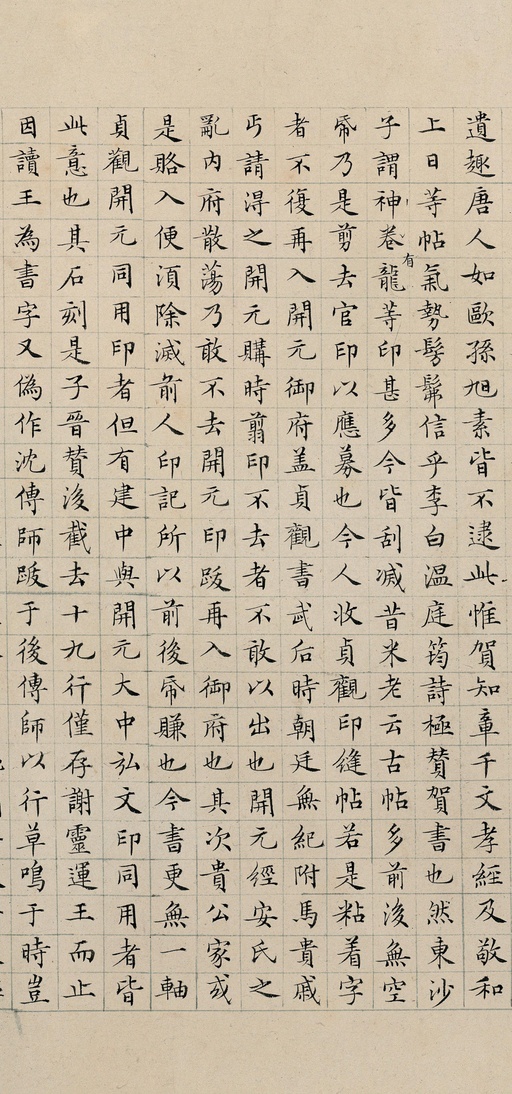 遺趣唐人如歐孫旭素皆不逮此惟賀知章千文孝經及敬和
上日等帖氣勢髣髴信乎李白溫庭筠詩極贊賀書也然東沙
子謂神卷有龍等印甚多今皆刮滅昔米老云古帖多前後無空
帋乃是剪去官印以應募也今人收貞觀印縫帖若是粘着字
者不復再入開元御府盖貞觀書武后時朝廷無紀附馬貴戚
丐請淂之開元購時翦印不去者不敢以出也開元經安氏之
亂內府散蕩乃敢不去開元印跋再入御府也其次貴公家或
是賂入便須除滅前人印記所以前後帋賺也今書更無一軸
貞觀開元同用印者但有建中與開元大中弘文印同用者皆
此意也其石刻是子晉贊後截去十九行僅存謝靈運王而止
因讀王為書字又偽作沈傳師跋于後傳師以行草鳴于時豈